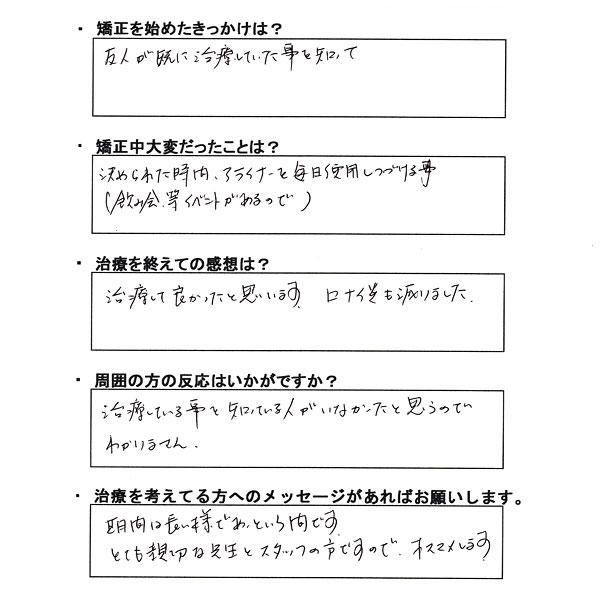 ・ 矯正を始めたきっかけは？
友人が既に治療していた事を知って
・ 矯正中大変だったことは？
決められた時間、アライナーを毎日使用しつづける事
(飲み会、等イベントがあるので)
・ 治療を終えての感想は？
治療して良かったと思います 口ナ徔も減りました.
・ 周囲の方の反応はいかがですか？
治療している事を知っている人がいなかったと思うので
わかりません.
・ 治療を考えてる方へのメッセージがあればお願いします。
期間は長い様であっという間です
とても親切な先生とスタッフの方ですので、オススメします